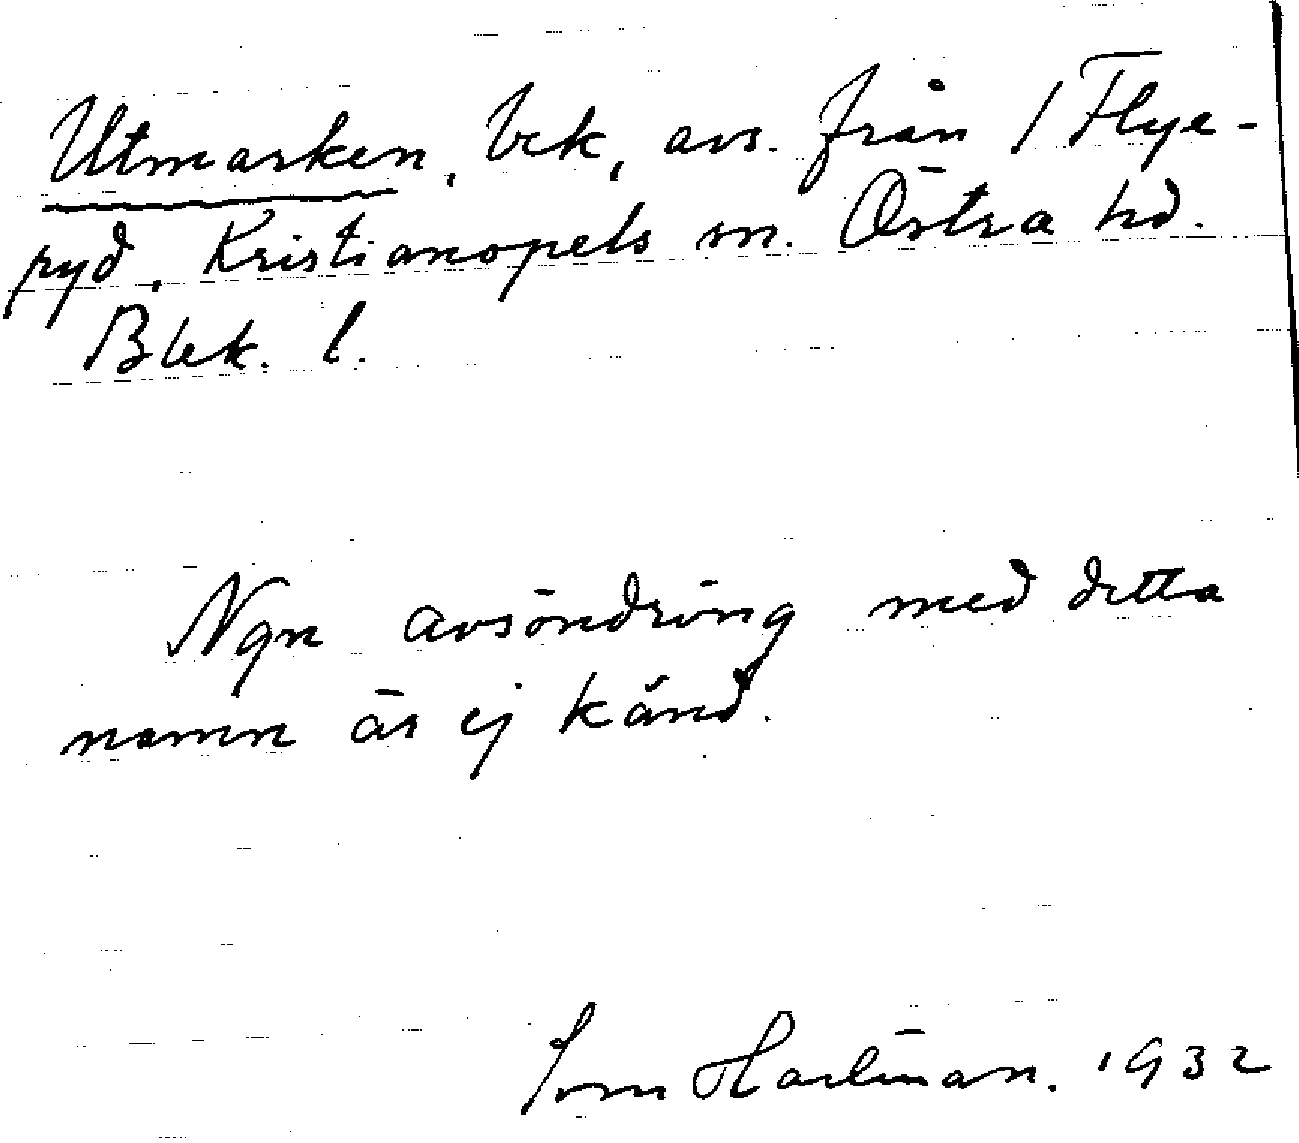 Utmarken, bek, avs. från 1 Flye-
ryd, Kristianopels sn. Östra hd.
Blek. l.
Ngn avsöndring med detta
namn är ej känd.
Hartman. 1932